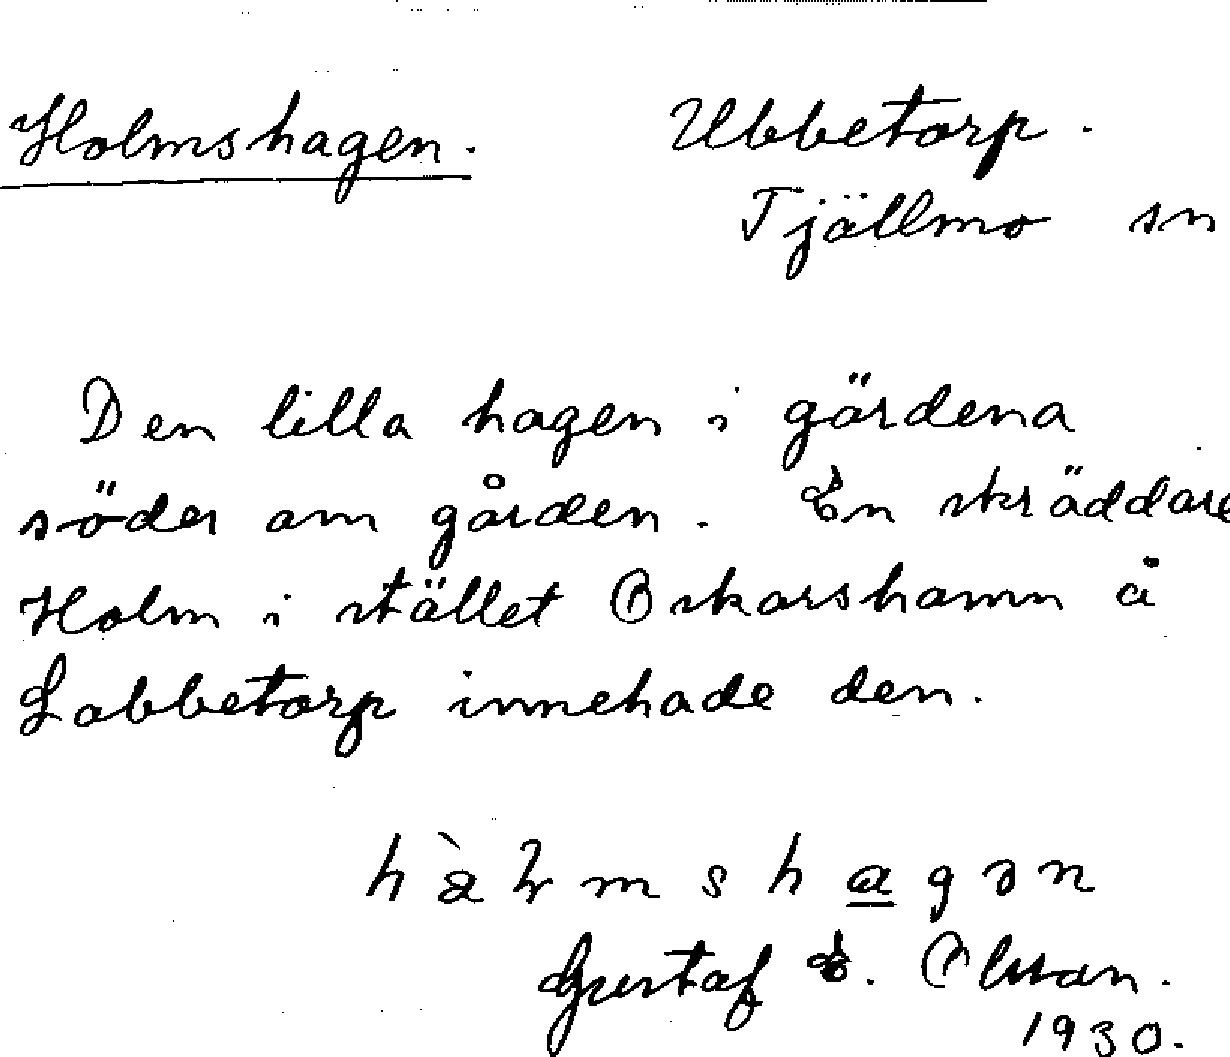 Holmshagen. Ubbetorp.
Tjällmo sn
Den lilla hagen i gärdena
söder om gården. En skräddare
Holm i stället Oskarshamn å
Labbetorp innehade den.
Gustaf E. Olsson.
1930.